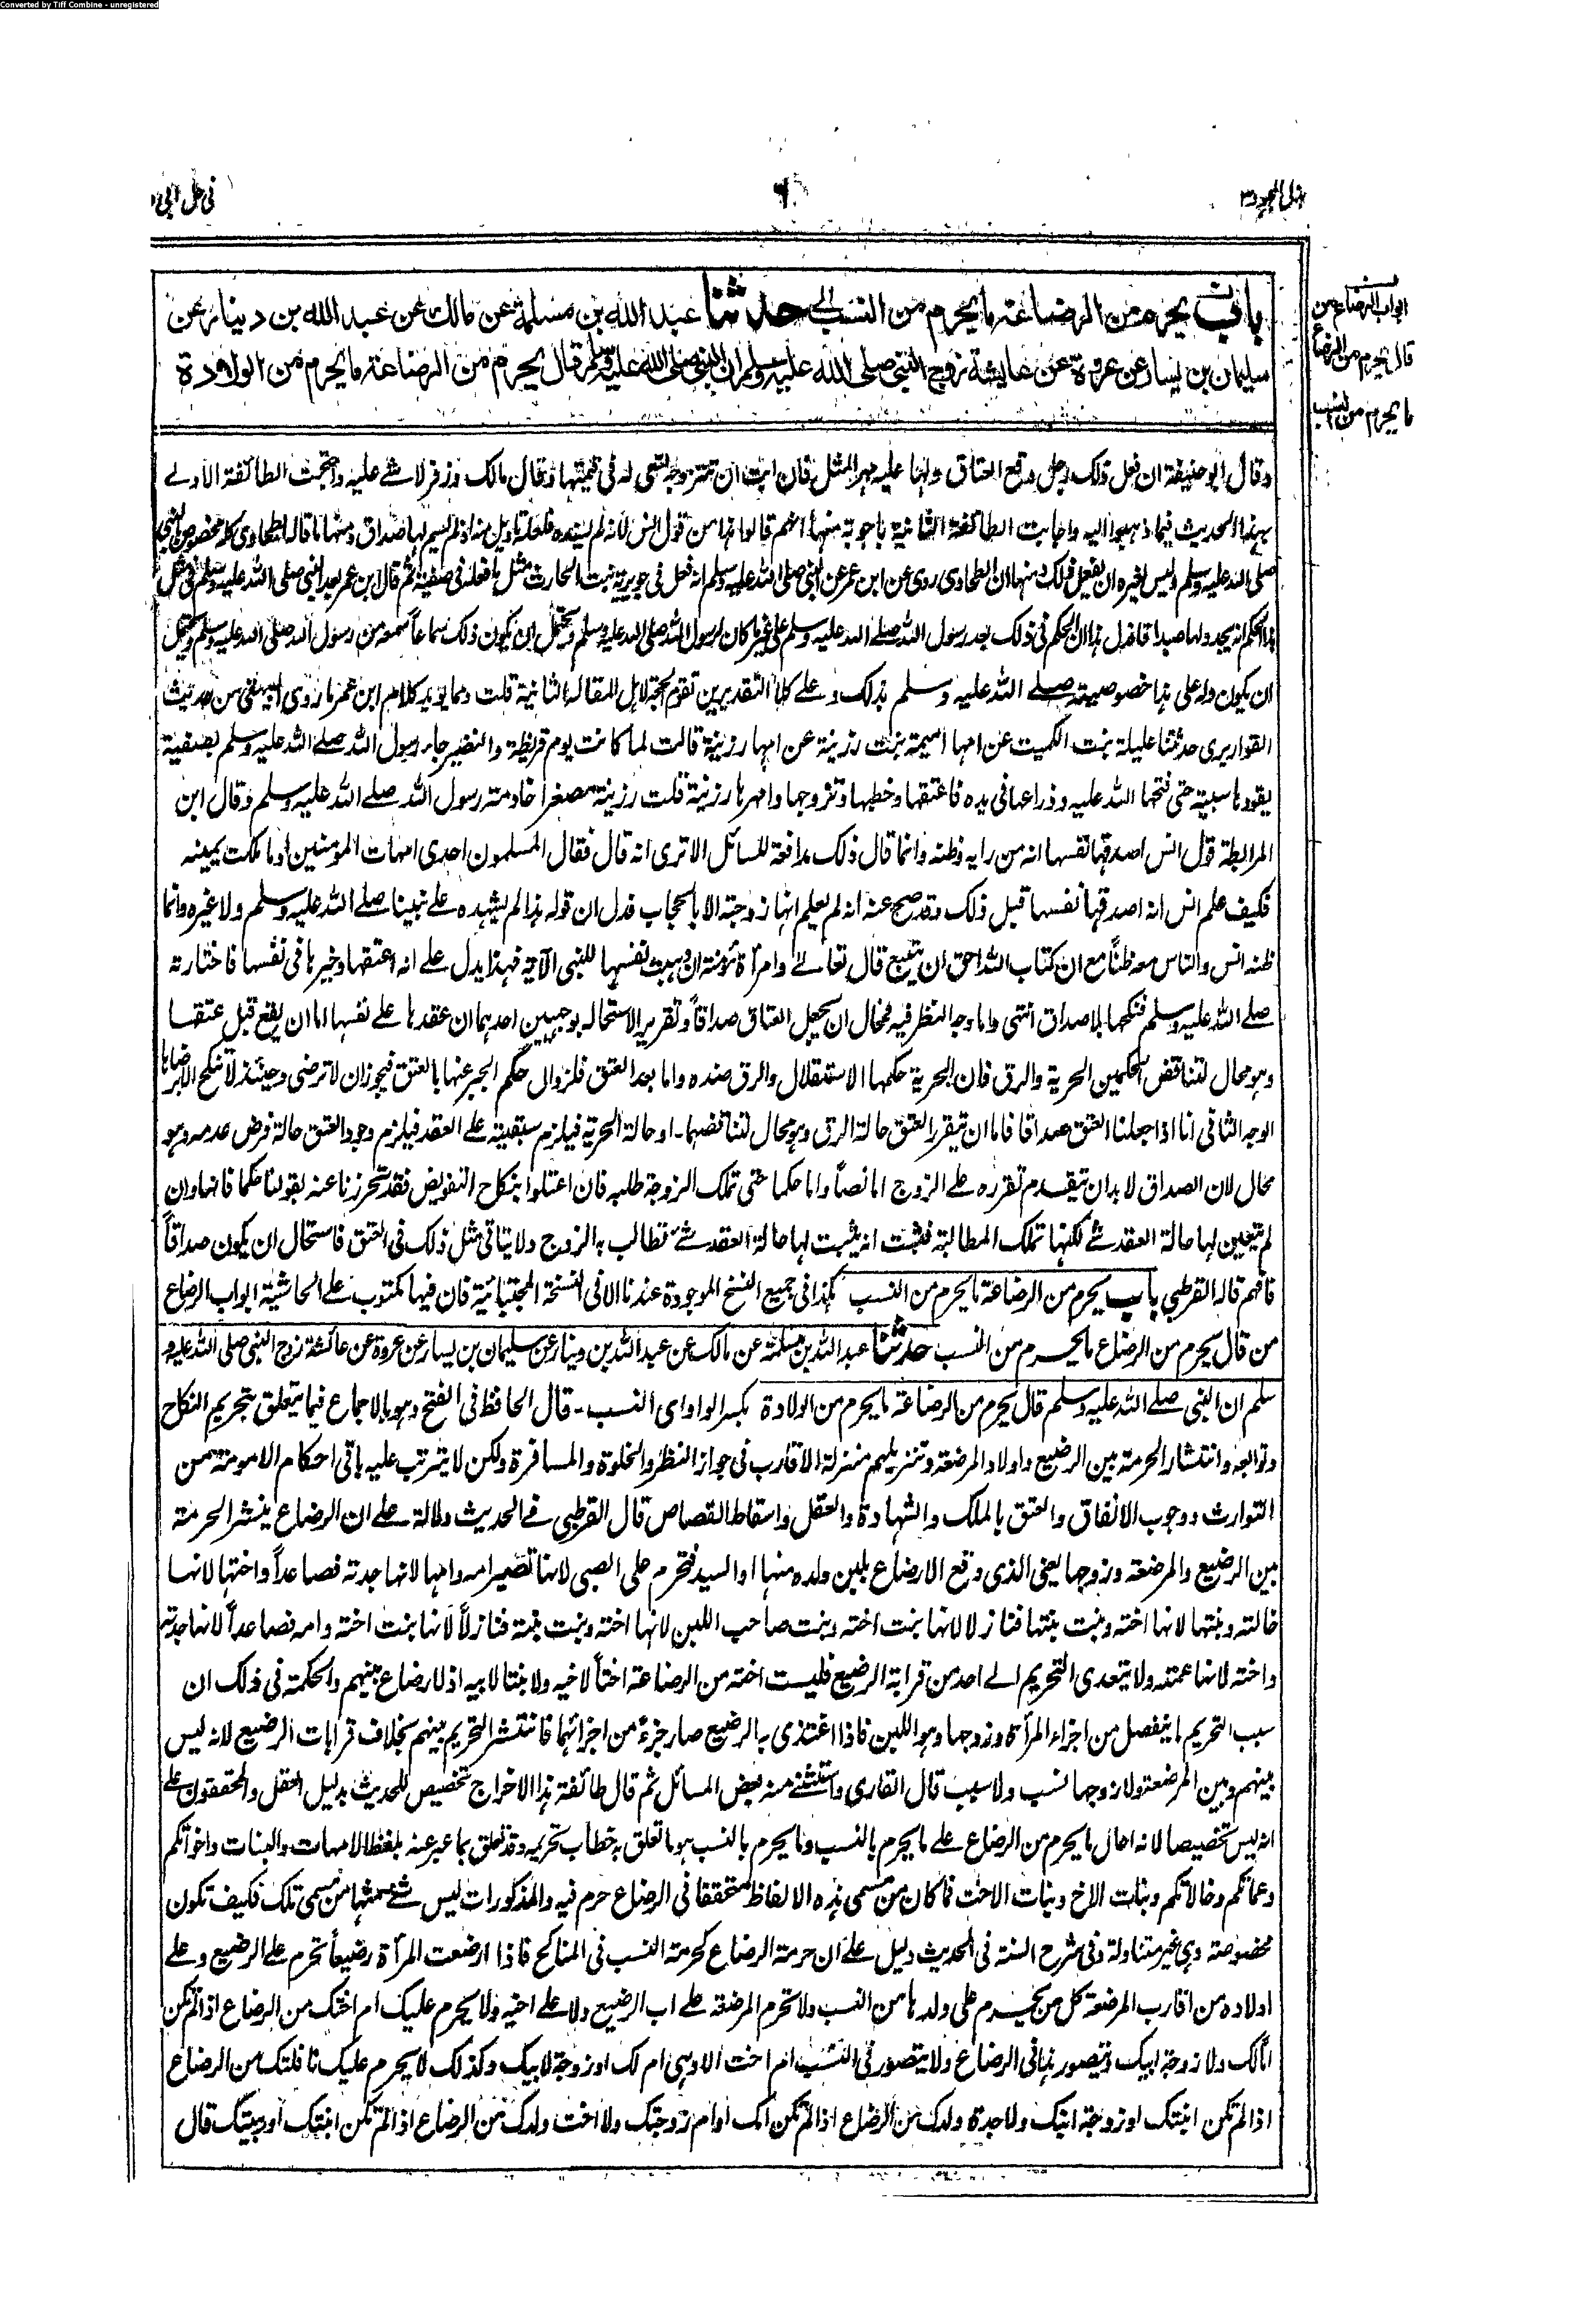 Converted by Tiff Combine - unregistered
بذل المجهود ٣
٦
فى حل ابى
ابواب الرضاع من
قال يحرم من الرضاع
ما يحرم من النسب
باب يحرم من الرضاعة ما يحرم من النسب حدثنا عبد الله بن مسلمة عن مالك عن عبد الله بن دينار عن
سليمان بن يسار عن عروة عن عايشة زوج النبى صلى الله عليه وسلم ان النبى صلى الله عليه وسلم قال يحرم من الرضاعة ما يحرم من الولادة
وقال ابو حنيفة ان فعل ذلك رجل وقع العتاق ولها عليه مهر المثل فان ابت ان تتزوجه تسعى له فى قيمتها وقال مالك وزفر لا شئ عليه واحتجت الطائفة الاولے
بهذا الحديث فيما ذهبوا اليه واجابت الطائفة الثانية باجوبة منها انهم قالوا هذا من قول انس لانه لم يسنده فلعله تاويل منه اذ لم يسم لها صداق ومنها ما قاله الطحاوى كله مخصوص بالنبى
صلى الله عليه وسلم وليس لغيره ان يفعل ذلك ومنها ان الطحاوى روى عن ابن عمر عن النبى صلى الله عليه وسلم انه فعل فى جويرية بنت الحارث مثل ما فعله فى صفية ثم قال ابن عمر بعد النبى صلى الله عليه وسلم فى مثل
هذا الحكم انه يجدد لها صداقا فدل هذا ان الحكم فى ذلك بعد رسول الله صلے الله عليه وسلم على غير ما كان لرسول الله صلى الله عليه وسلم ويحتمل ان يكون ذلك سماعاً سمعه من رسول الله صلى الله عليه وسلم ويحتمل
ان يكون دله على هذا خصوصيته صلے الله عليه وسلم بذلك وعلے كلا التقديرين تقوم الحجة لاهل المقالة الثانية قلت ومما يويد كلام ابن عمر ما روى البيهقى من حديث
القواريرى حدثتنا عليلة بنت الكميت عن امها اميمة بنت رزينة عن امها رزينة قالت لما كانت يوم قريظة والنضير جاء رسول الله صلے الله عليه وسلم بصفية
يقودها سبية حتى فتحها الله عليه وذراعها فى يده فاعتقها وخطبها وتزوجها وامهرها رزينة قلت رزينة مصغرا خادمة رسول الله صلے الله عليه وسلم وقال ابن
المرابطة قول انس اصدقها نفسها انه من رايه وظنه وانما قال ذلك مدافعة للسائل الا ترى انه قال فقال المسلمون احدى امهات المؤمنين او ما ملكت يمينه
فكيف علم انس انه اصدقها نفسها قبل ذلك وقد صح عنه انه لم يعلم انها زوجته الا بالحجاب فدل ان قوله هذا لم يشهده علے نبينا صلے الله عليه وسلم ولا غيره وانما
ظنه انس والناس معه ظناً مع ان كتاب الله احق ان يتبع قال تعالے وامرأة مؤمنة ان وهبت نفسها للنبى الآية فهذا يدل علے انه اعتقها وخيرها فى نفسها فاختارته
صلے الله عليه وسلم فنكحها بلا صداق انتهى واما وجه النظر فيه فمحال ان يجعل العتاق صداقاً وتقرير الاستحالة بوجهين احدهما ان عقدها علے نفسها اما ان يقع قبل عتقها
وهو محال لتناقض الحكمين الحرية والرق فان الحرية حكمها الاستقلال والرق ضده واما بعد العتق فلزوال حكم الجبر عنها بالعتق فيجوز ان لا ترضى وحينئذ لا تنكح الا برضاها
الوجه الثانى انا اذا جعلنا العتق صداقا فاما ان يتقرر العتق حالة الرق وهو محال لتناقضهما۔ او حالة الحرية فيلزم سبقيته علے العقد فيلزم وجود العتق حالة فرض عدمه وهو
محال لان الصداق لا بد ان يتقدم تقرره علے الزوج اما نصاً واما حكما حتى تملك الزوجة طلبه فان اعتلوا بنكاح التفويض فقد تحرزنا عنه بقولنا حكما فانها وان
لم يتعين لها حالة العقد شئ لكنها تملك المطالبة فثبت انه يثبت لها حالة العقد شئ تطالب به الزوج ولا يتاتى مثل ذلك فى العتق فاستحال ان يكون صداقاً
فافهم قاله القرطبى باب يحرم من الرضاعة ما يحرم من النسب هكذا فى جميع النسخ الموجودة عندنا الا فى النسخة المجتبائية فان فيها مكتوب علے الحاشية ابواب الرضاع
من قال يحرم من الرضاع ما يحرم من النسب حدثنا عبد الله بن مسلمة عن مالك عن عبد الله بن دينار عن سليمان بن يسار عن عروة عن عائشة زوج النبى صلى الله عليه و
سلم ان النبى صلے الله عليه وسلم قال يحرم من الرضاعة ما يحرم من الولادة بكسر الواو اى النسب۔ قال الحافظ فى الفتح وهو بالاجماع فيما يتعلق بتحريم النكاح
وتوابعه وانتشار الحرمة بين الرضيع واولاد المرضعة وتنزيلهم منزلة الاقارب فى جواز النظر والخلوة والمسافرة ولكن لا يترتب عليه باقى احكام الامومة من
التوارث ووجوب الانفاق والعتق بالملك والشهادة والعقل واسقاط القصاص قال القرطبى فے الحديث دلالة علے ان الرضاع ينشر الحرمة
بين الرضيع والمرضعة وزوجها يعنى الذى وقع الارضاع بلبن ولده منها او السيد فتحرم على الصبى لانها تصير امه وامها لانها جدته فصاعداً واختها لانها
خالته وبنتها لانها اخته وبنت بنتها فنازلا لانها بنت اخته وبنت صاحب اللبن لانها اخته وبنت بنته فنازلاً لانها بنت اخته وامه فصاعداً لانها جدته
واخته لانها عمته ولا يتعدى التحريم الے احد من قرابة الرضيع فليست اخته من الرضاعة اختاً لاخيه ولا بنتا لابيه اذ لا رضاع بينهم والحكمة فى ذلك ان
سبب التحريم ما ينفصل من اجزاء المرأة وزوجها وهو اللبن فاذا اغتذى به الرضيع صار جزءً من اجزائهما فانتشر التحريم بينهم بخلاف قرابات الرضيع لانه ليس
بينهم وبين المرضعة ولا زوجها نسب ولا سبب قال القارى واستثنے منه بعض المسائل ثم قال طائفة هذا الاخراج تخصيص للحديث بدليل العقل والمحققون علے
انه ليس تخصيصا لانه احال ما يحرم من الرضاع علے ما يحرم بالنسب وما يحرم بالنسب هو ما تعلق به خطاب تحريمه وقد تعلق بما عبر عنه بلفظ الامهات والبنات واخواتكم
وعماتكم وخالاتكم وبنات الاخ وبنات الاخت فما كان من مسمى هذه الالفاظ متحققا فى الرضاع حرم فيه والمذكورات ليس شئ منها من مسمى تلك فكيف تكون
مخصوصة وهى غير متناولة وفى شرح السنة فى الحديث دليل علے ان حرمة الرضاع كحرمة النسب فى المناكح فاذا ارضعت المرأة رضيعاً تحرم علے الرضيع وعلے
اولاده من اقارب المرضعة كل من يحرم على ولدها من النسب ولا تحرم المرضعة علے اب الرضيع ولا علے اخيه ولا يحرم عليك ام اختك من الرضاع اذا لم تكن
امالك ولا زوجة ابيك ويتصور هذا فى الرضاع ولا يتصور فى النسب ام اخت الا وهى ام لك او زوجة لابيك وكذلك لا يحرم عليك نافلتك من الرضاع
اذا لم تكن ابنتك او زوجة ابنك ولا جدة ولدك من الرضاع اذا لم تكن امك او ام زوجتك ولا اخت ولدك من الرضاع اذا لم تكن ابنتك او ربيبتك قال